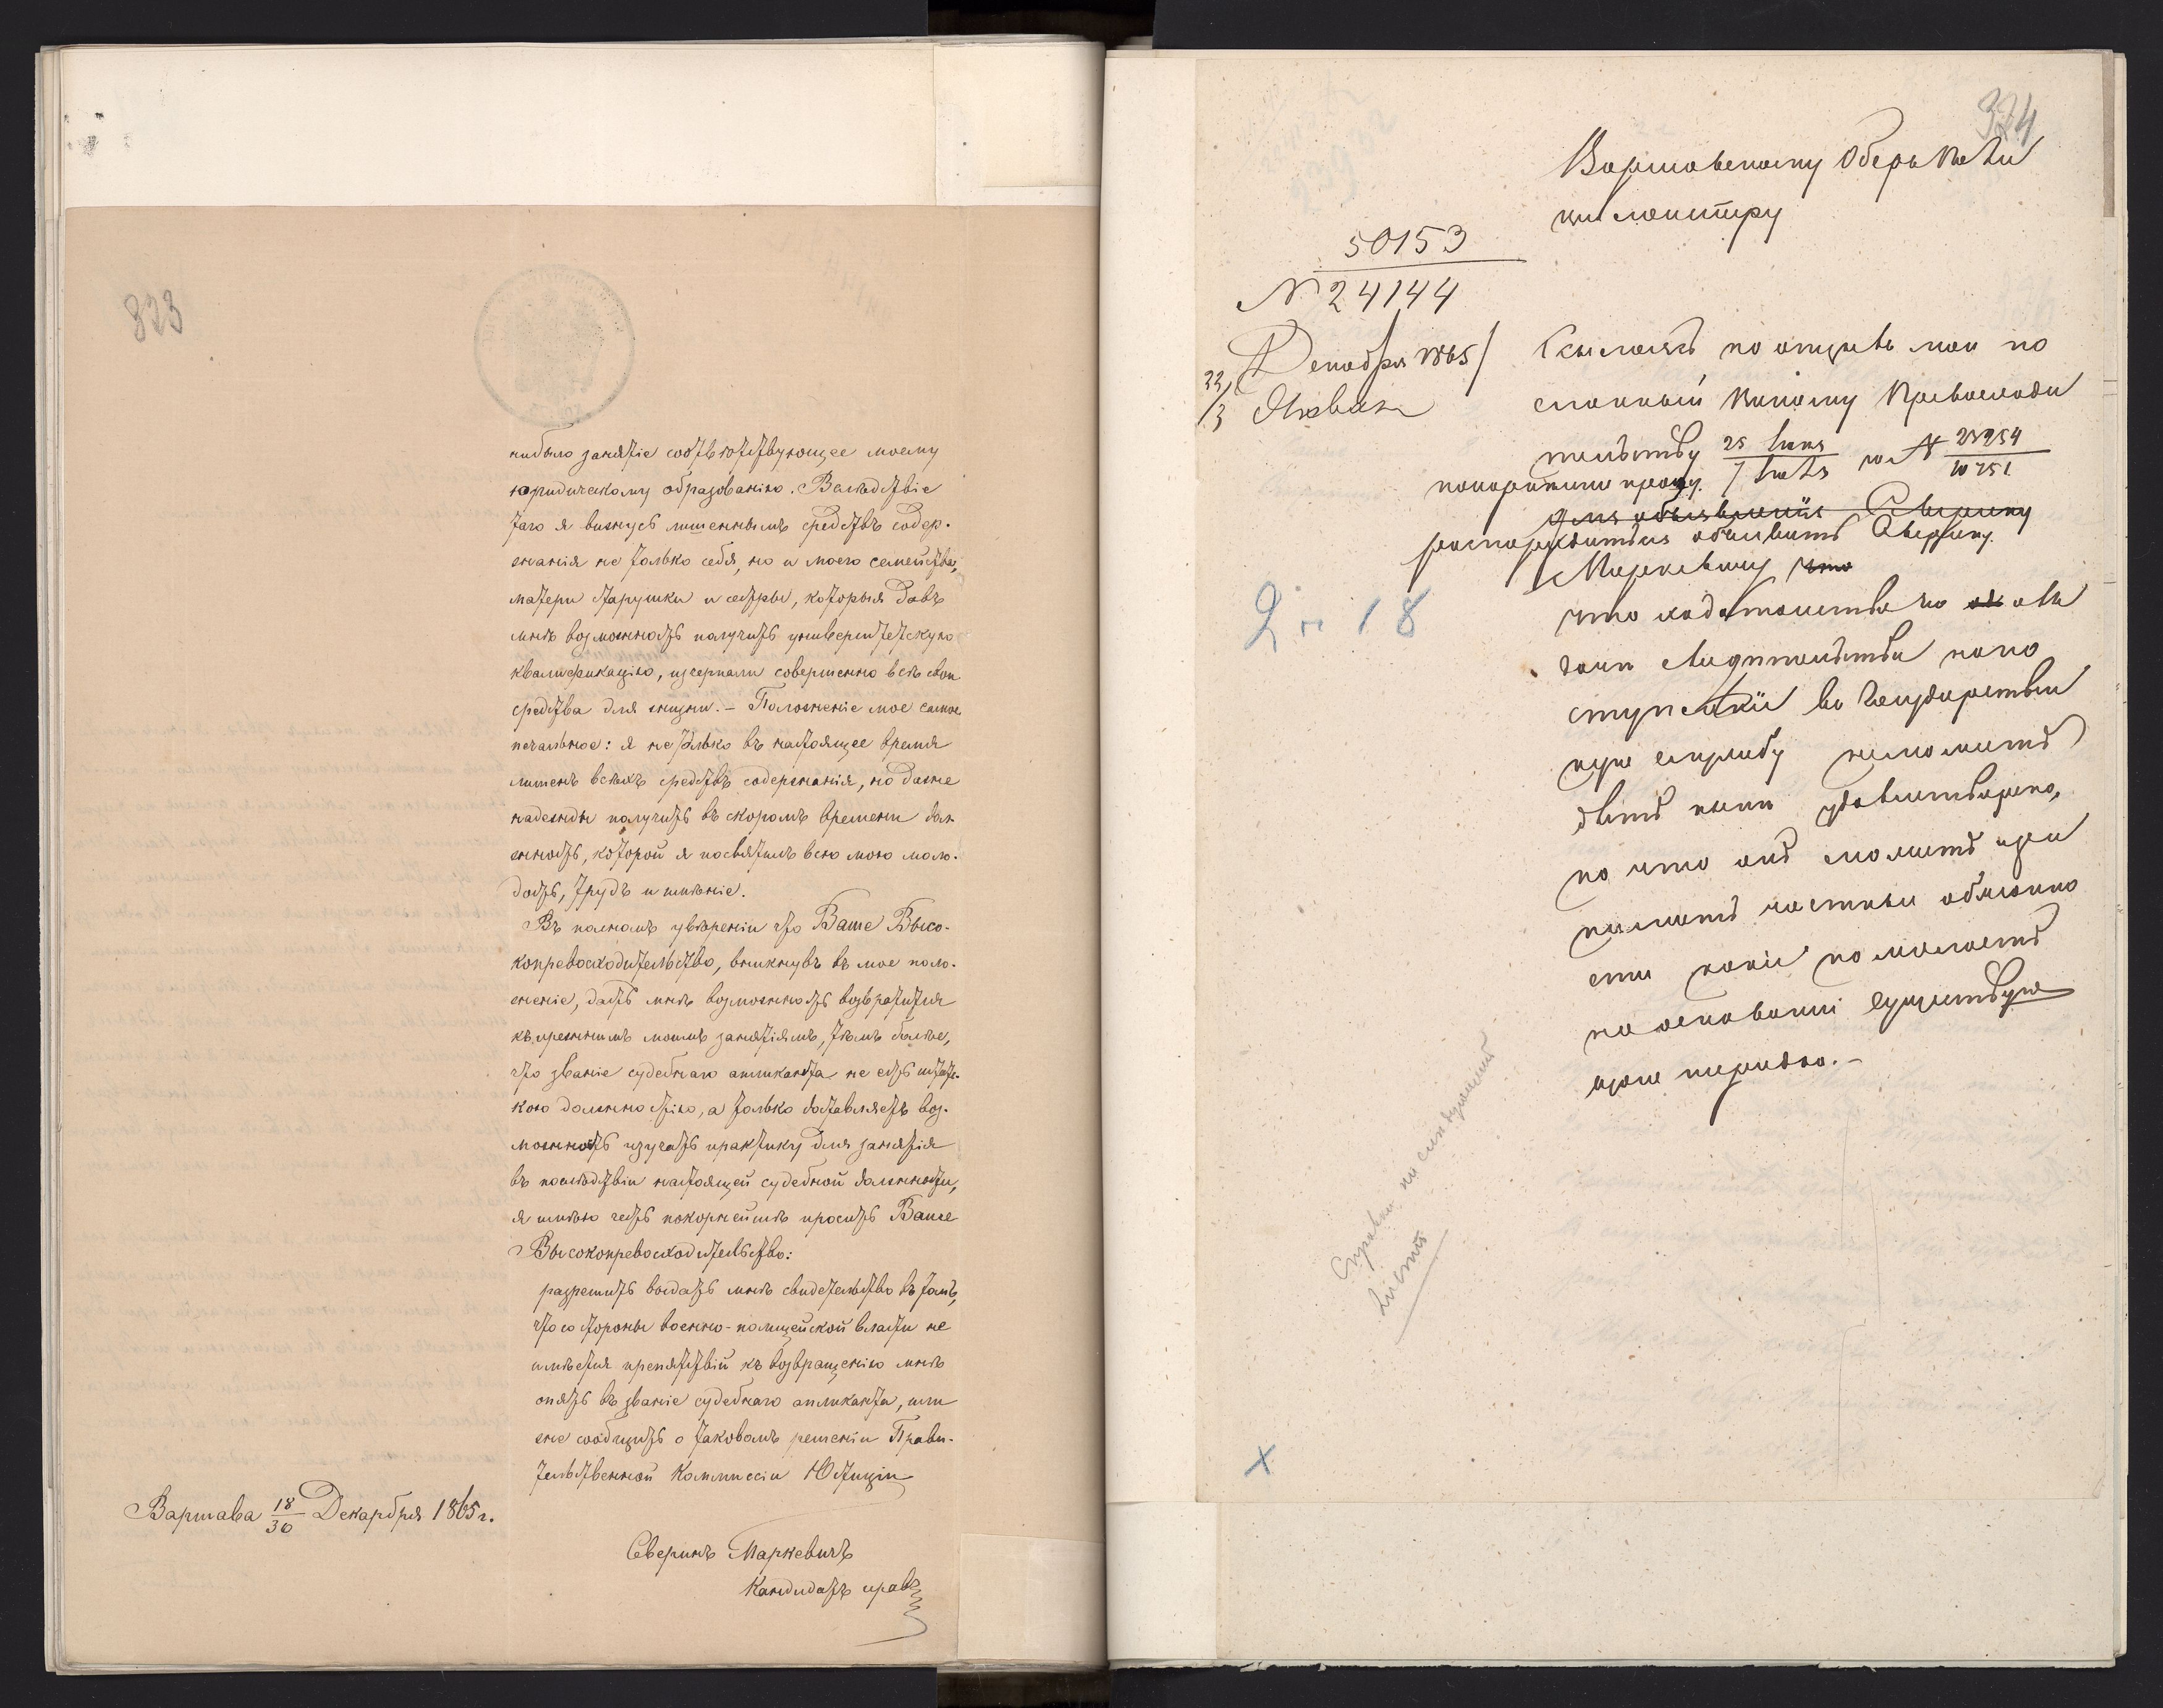 323
нибыло занятіе соотвѣтствующее моему
юридическому образованію. Вслѣдствіе
того я вижусь лишеннымъ средствъ содер-
жанія не только себя, но и моего семейства,
матери старушки и сестры, которыя давъ
мнѣ возможность получить университетскую
квалификацію, исчерпали совершенно всѣ свои
средства для жизни. – Положеніе мое самое
печальное: я не только въ настоящее время
лишенъ всѣхъ средствъ содержанія, но даже
надежды получить въ скоромъ времени дол-
жность, которой я посвятилъ всю мою моло-
дость, трудъ и имѣніе.
Въ полномъ увѣреніи что Ваше Высо-
копревосходительство, вникнувъ въ мое поло-
женіе, дастъ мнѣ возможность возвратится
къ прежнимъ моимъ занятіямъ, тѣмъ болѣе,
что званіе судебнаго аппликанта не есть штатс-
кою должностію, а только доставляетъ воз-
можность изучать практику для занятія
въ послѣдствіи настоящей судебной должности,
я имѣю честь покорнейше просить Ваше
Высокопревосходительство:
разрешить выдать мнѣ свидетельство въ томъ,
что со стороны военно-полицейской власти не
имѣется препятствій къ возвращенію мнѣ
опять въ званіе судебнаго аппликанта, или
же сообщить о таковомъ решеніи Прави-
тельственной Коммиссіи Юстиціи
Варшава 18/30 Декарбря 1865 г.
Северинъ Маркевичъ
Кандидатъ правъ
324
Варшавскому Оберъ Поли
цмейстеру
50153
N 24144
22/3 Декабря 1865/
Января
Ссылаясь на отзывъ мой по
сланный Вашему Превосходи
тельству 25/7 за N 23954/10751
покорнѣйше прошу
для объявленія Северину
распорядиться объявить Северину
Маркевичу что
что ходатайство его объ
поступленіи въ Государствен
ную службу неможетъ
быть нынѣ удовлетворено,
но что онъ можетъ при
нимать частныя обязанно
сти какія пожелаетъ
на основаніи существую
щихъ правилъ.–
2 н 18
Справка на слѣдующемъ
листѣ
х